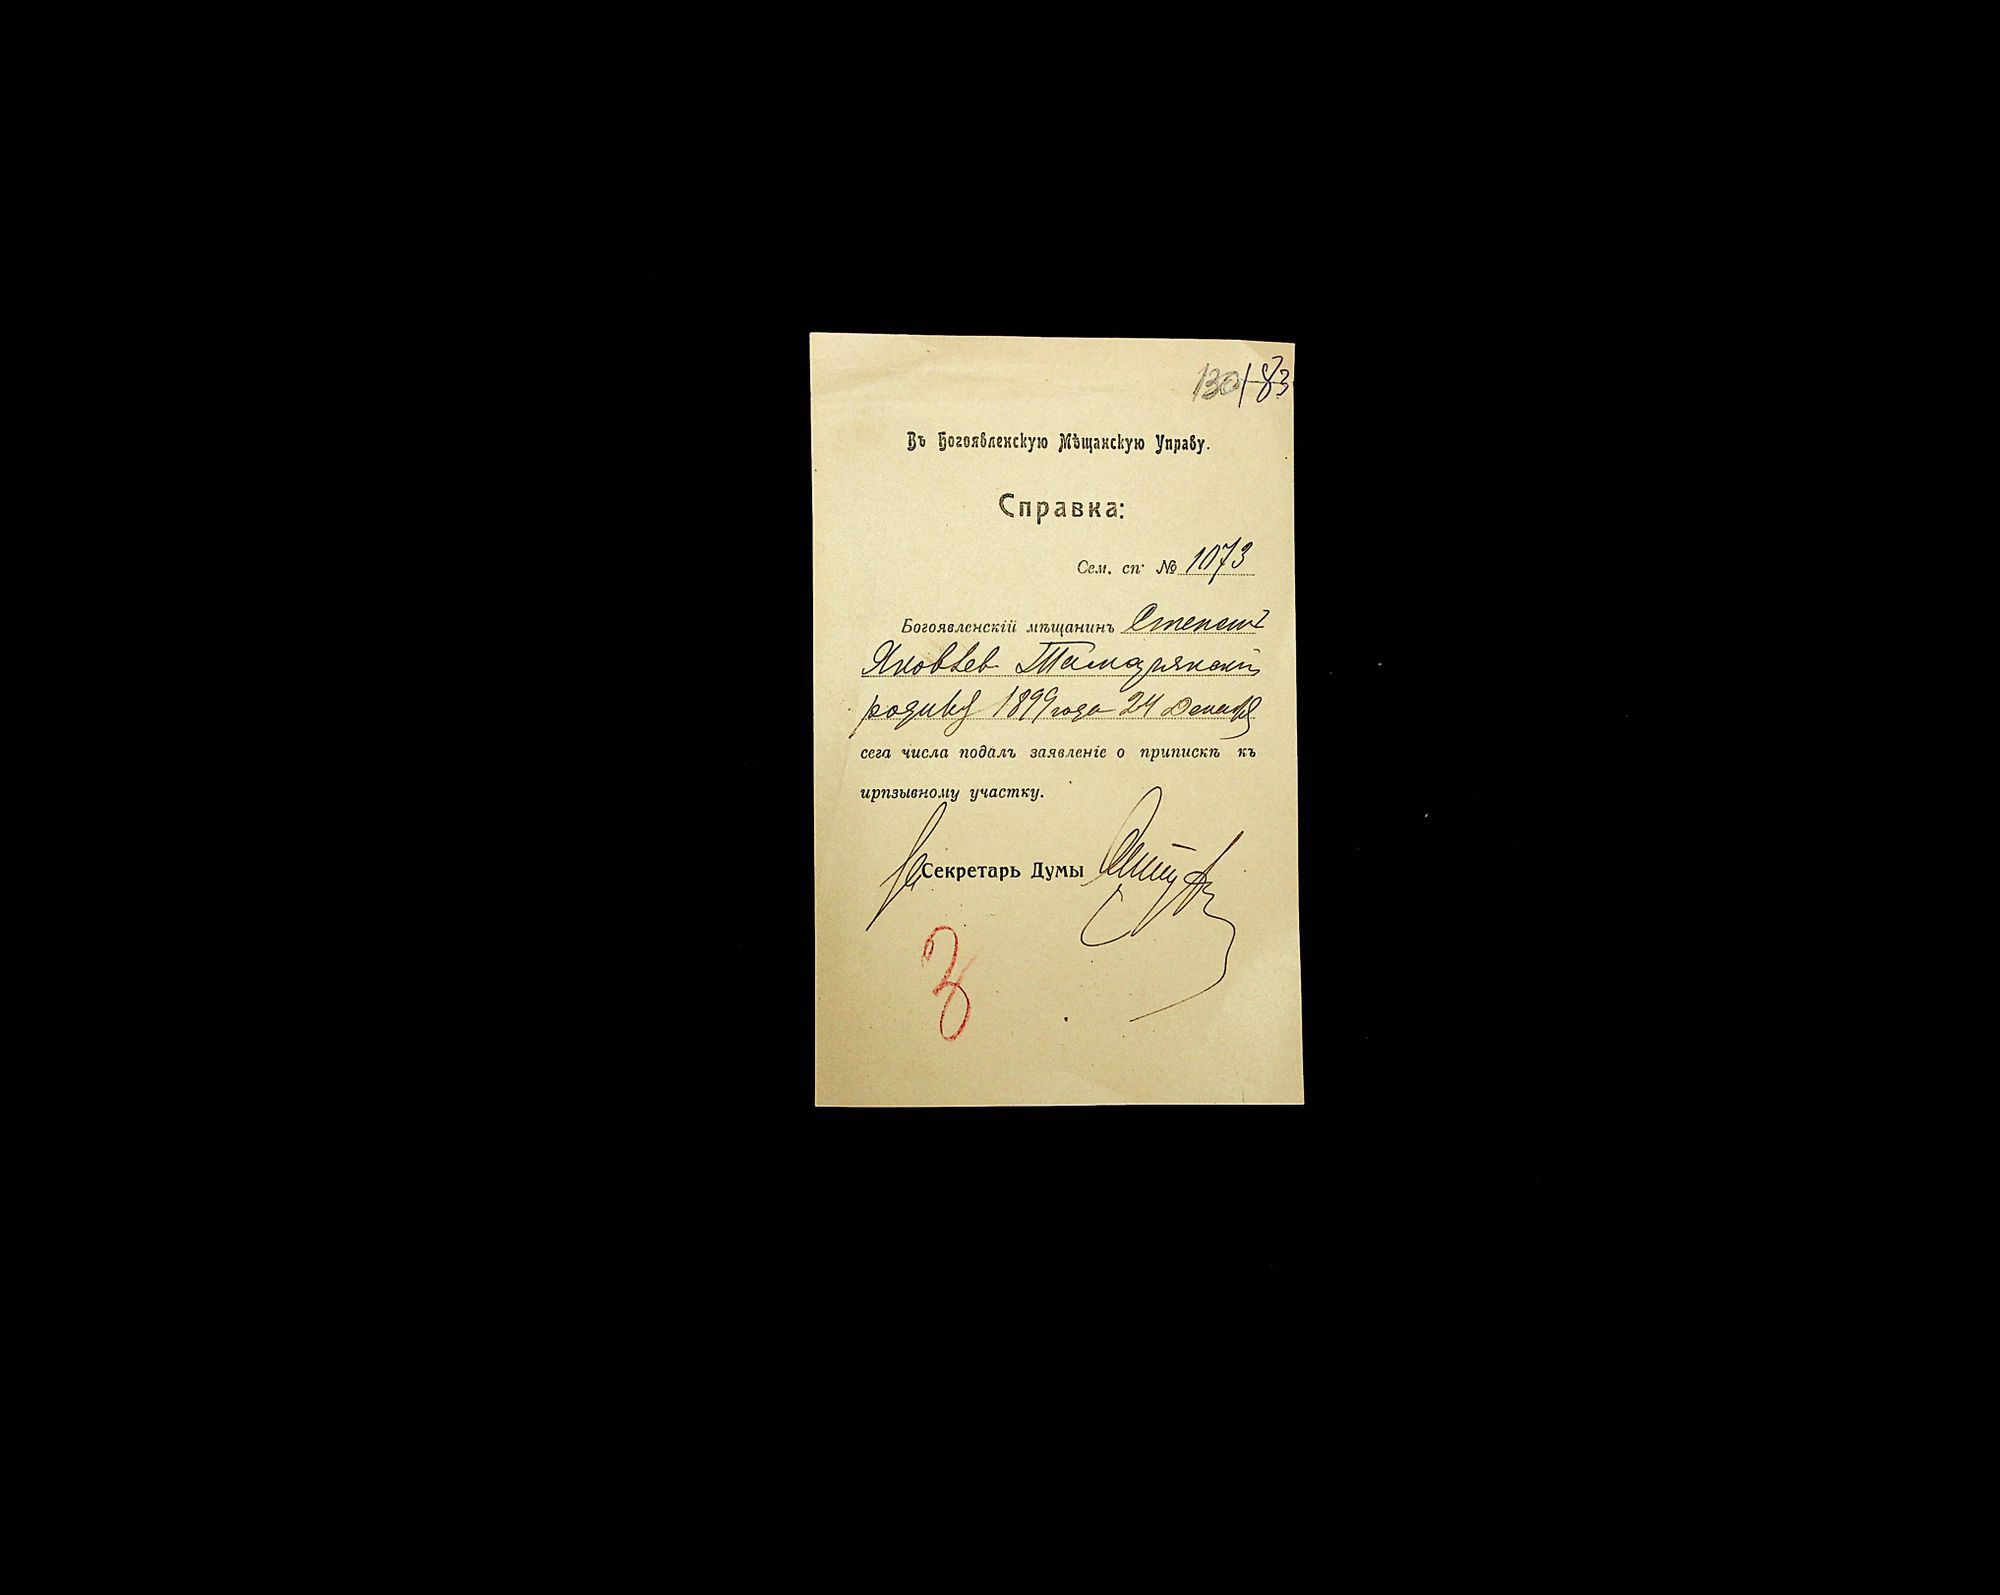 130 183
Въ Богоявленскую Мѣщанскую Управу.
Справка:
Сем. сп. № 1073
Богоявленскій мѣщанинъ Степанъ
Яковлев
родив 1899 года 24 Декабр
сега числа подалъ заявленіе о припискѣ къ
ирпзывному участку.
Секретарь Думы
3